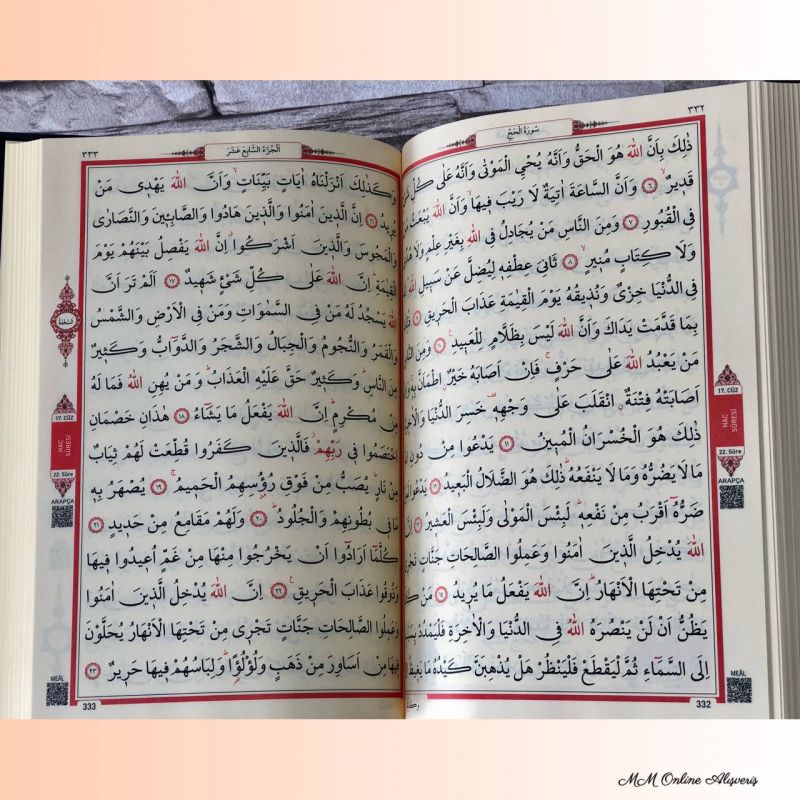 ٣٣٢
سُورَةُ الْحَجِّ
ذٰلِكَ بِاَنَّ اللّٰهَ هُوَ الْحَقُّ وَاَنَّهُ يُحْيِ الْمَوْتٰى وَاَنَّهُ عَلٰى كُلِّ
قَدٖيرٌۙ ﴿٦﴾ وَاَنَّ السَّاعَةَ اٰتِيَةٌ لَا رَيْبَ فٖيهَاۙ وَاَنَّ اللّٰهَ يَبْعَثُ
فِي الْقُبُورِ ﴿٧﴾ وَمِنَ النَّاسِ مَنْ يُجَادِلُ فِي اللّٰهِ بِغَيْرِ عِلْمٍ وَلَا
وَلَا كِتَابٍ مُنٖيرٍۙ ﴿٨﴾ ثَانِيَ عِطْفِهٖ لِيُضِلَّ عَنْ سَبٖيلِ اللّٰهِ
فِي الدُّنْيَا خِزْيٌ وَنُذٖيقُهُ يَوْمَ الْقِيٰمَةِ عَذَابَ الْحَرٖيقِ ﴿٩﴾
بِمَا قَدَّمَتْ يَدَاكَ وَاَنَّ اللّٰهَ لَيْسَ بِظَلَّامٍ لِلْعَبٖيدِ ﴿١٠﴾ وَمِنَ
مَنْ يَعْبُدُ اللّٰهَ عَلٰى حَرْفٍۚ فَاِنْ اَصَابَهُ خَيْرٌۨ اطْمَاَنَّ
اَصَابَتْهُ فِتْنَةٌۨ انْقَلَبَ عَلٰى وَجْهِهٖۚ خَسِرَ الدُّنْيَا
ذٰلِكَ هُوَ الْخُسْرَانُ الْمُبٖينُ ﴿١١﴾ يَدْعُوا مِنْ دُونِ
مَا لَا يَضُرُّهُ وَمَا لَا يَنْفَعُهُؕ ذٰلِكَ هُوَ الضَّلَالُ الْبَعٖيدُ ﴿١٢﴾ يَدْعُوا
ضَرُّهُٓ اَقْرَبُ مِنْ نَفْعِهٖؕ لَبِئْسَ الْمَوْلٰى وَلَبِئْسَ الْعَشٖيرُ ﴿١٣﴾
اللّٰهَ يُدْخِلُ الَّذٖينَ اٰمَنُوا وَعَمِلُوا الصَّالِحَاتِ جَنَّاتٍ
مِنْ تَحْتِهَا الْاَنْهَارُؕ اِنَّ اللّٰهَ يَفْعَلُ مَا يُرٖيدُ ﴿١٤﴾ مَنْ
يَظُنُّ اَنْ لَنْ يَنْصُرَهُ اللّٰهُ فِي الدُّنْيَا وَالْاٰخِرَةِ فَلْيَمْدُدْ
اِلَى السَّمَٓاءِ ثُمَّ لْيَقْطَعْ فَلْيَنْظُرْ هَلْ يُذْهِبَنَّ كَيْدُهُ مَا
17. CÜZ
HAC SÛRESİ
22. Sûre
ARAPÇA
MEÂL
332
٣٣٣
اَلْجُزْءُ السَّابِعُ عَشَرَ
وَكَذٰلِكَ اَنْزَلْنَاهُ اٰيَاتٍ بَيِّنَاتٍۙ وَاَنَّ اللّٰهَ يَهْدٖي مَنْ
يُرٖيدُ ﴿١٦﴾ اِنَّ الَّذٖينَ اٰمَنُوا وَالَّذٖينَ هَادُوا وَالصَّابِـٖٔينَ وَالنَّصَارٰى
وَالْمَجُوسَ وَالَّذٖينَ اَشْرَكُواۗ اِنَّ اللّٰهَ يَفْصِلُ بَيْنَهُمْ يَوْمَ
الْقِيٰمَةِؕ اِنَّ اللّٰهَ عَلٰى كُلِّ شَيْءٍ شَهٖيدٌ ﴿١٧﴾ اَلَمْ تَرَ اَنَّ
اللّٰهَ يَسْجُدُ لَهُ مَنْ فِي السَّمٰوَاتِ وَمَنْ فِي الْاَرْضِ وَالشَّمْسُ
وَالْقَمَرُ وَالنُّجُومُ وَالْجِبَالُ وَالشَّجَرُ وَالدَّوَٓابُّ وَكَثٖيرٌ
مِنَ النَّاسِؕ وَكَثٖيرٌ حَقَّ عَلَيْهِ الْعَذَابُؕ وَمَنْ يُهِنِ اللّٰهُ فَمَا لَهُ
مِنْ مُكْرِمٍؕ اِنَّ اللّٰهَ يَفْعَلُ مَا يَشَٓاءُ ﴿١٨﴾ هٰذَانِ خَصْمَانِ
اخْتَصَمُوا فٖي رَبِّهِمْؗ فَالَّذٖينَ كَفَرُوا قُطِّعَتْ لَهُمْ ثِيَابٌ
مِنْ نَارٍؕ يُصَبُّ مِنْ فَوْقِ رُؤُ۫سِهِمُ الْحَمٖيمُۚ ﴿١٩﴾ يُصْهَرُ بِهٖ
مَا فٖي بُطُونِهِمْ وَالْجُلُودُؕ ﴿٢٠﴾ وَلَهُمْ مَقَامِعُ مِنْ حَدٖيدٍ ﴿٢١﴾
كُلَّمَٓا اَرَادُٓوا اَنْ يَخْرُجُوا مِنْهَا مِنْ غَمٍّ اُعٖيدُوا فٖيهَا
وَذُوقُوا عَذَابَ الْحَرٖيقِ۟ ﴿٢٢﴾ اِنَّ اللّٰهَ يُدْخِلُ الَّذٖينَ اٰمَنُوا
وَعَمِلُوا الصَّالِحَاتِ جَنَّاتٍ تَجْرٖي مِنْ تَحْتِهَا الْاَنْهَارُ يُحَلَّوْنَ
فٖيهَا مِنْ اَسَاوِرَ مِنْ ذَهَبٍ وَلُؤْلُؤًاؕ وَلِبَاسُهُمْ فٖيهَا حَرٖيرٌ ﴿٢٣﴾
اَلسَّجْدَةُ
17. CÜZ
HAC SÛRESİ
22. Sûre
ARAPÇA
MEÂL
333
MM Online Alışveriş